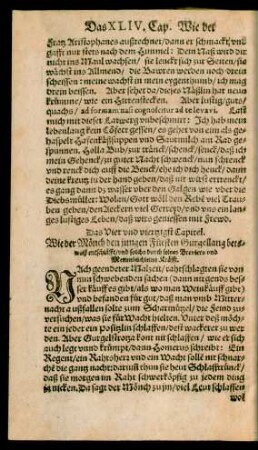 Das XLIV. Cap. Wie der
Fratz Aristophanes außrechnet / dann er schmackt / vnd
gafft nur stets nach dem Himmel: Dein Naß wird dir
noch ins Maul wachsen / sie lenckt sich zur Seiten / sie
wächst ins Allmend / die Bawren werden noch drein
scheissen: meine wacht in mein eygenthumb / ich mag
drein beissen. Aber sehet da / dieses Näßlin hat neun
krümme / wie ein Hirtenstecken. Aber lustig / guts /
quachs / ad formam nasi cognoscitur ad te levavi. Last
mich mit dieser Latwerg unbeschmirt: Ich hab mein
lebenlang kein Löffel gessen / es gehet von eim als ge-
haspelt Hasenfüßsuppen von Sturmilch am Rad ge-
sponnen. Holla Bub / zur tränck / schenck / senck / daß ich
mein Gehenck / zu guter Nacht schwenck / nun schrenck
vnd renck dich auff die Benck / ehe ich dich henck / dann
deine kreutz zu der hand geben / daß nit wüst ertrenck /
es gang dann das wasser vber den Galgen wie vber die
Diebsmüller: Wolan / Gott wöll den Rebe viel Trau-
ben geben / den Aeckern viel Getreyd / vnd vns ein langes
lustiges Leben / daß wirs geniessen mit Frewd.
Das Vier und viertzigst Capitel.
Wie der Mönch den jungen Fürsten Gurgellang bets-
weiß entschläfft / vnd solches durch seines Breviers vnd
Mettenbüchleins Krafft.
NAch geendeter Malzeit / rahtschlagten sie von
nun schwebenden sachen (dann nirgends bes-
ser käuff es gibt / als wo man Weinkäuff gibt)
vnd befanden für gut / daß man vmb Mitter-
nacht außfallen solte zum Scharmützel / die Feind zu
versuchen / was sie für Wacht hielten. Vnter deß möch-
te ein jeder ein postzlin schlaffen / deß wackerer zu wer-
den. Aber Gurgelstroza kont nit schlaffen / wie er sich
auch legt vnnd krümpt / dann Homerus schreibt: Ein
Regent / ein Rahtsherr vnd ein Wacht sollt nit schnar-
che die gantz nacht: darumb thun sie heut Schlafftrünck /
daß sie morgen im Raht schwerköpfig zu jedem ding
nicken. Da sagt der Mönch zu jm / viel Leut schlaffen
wol